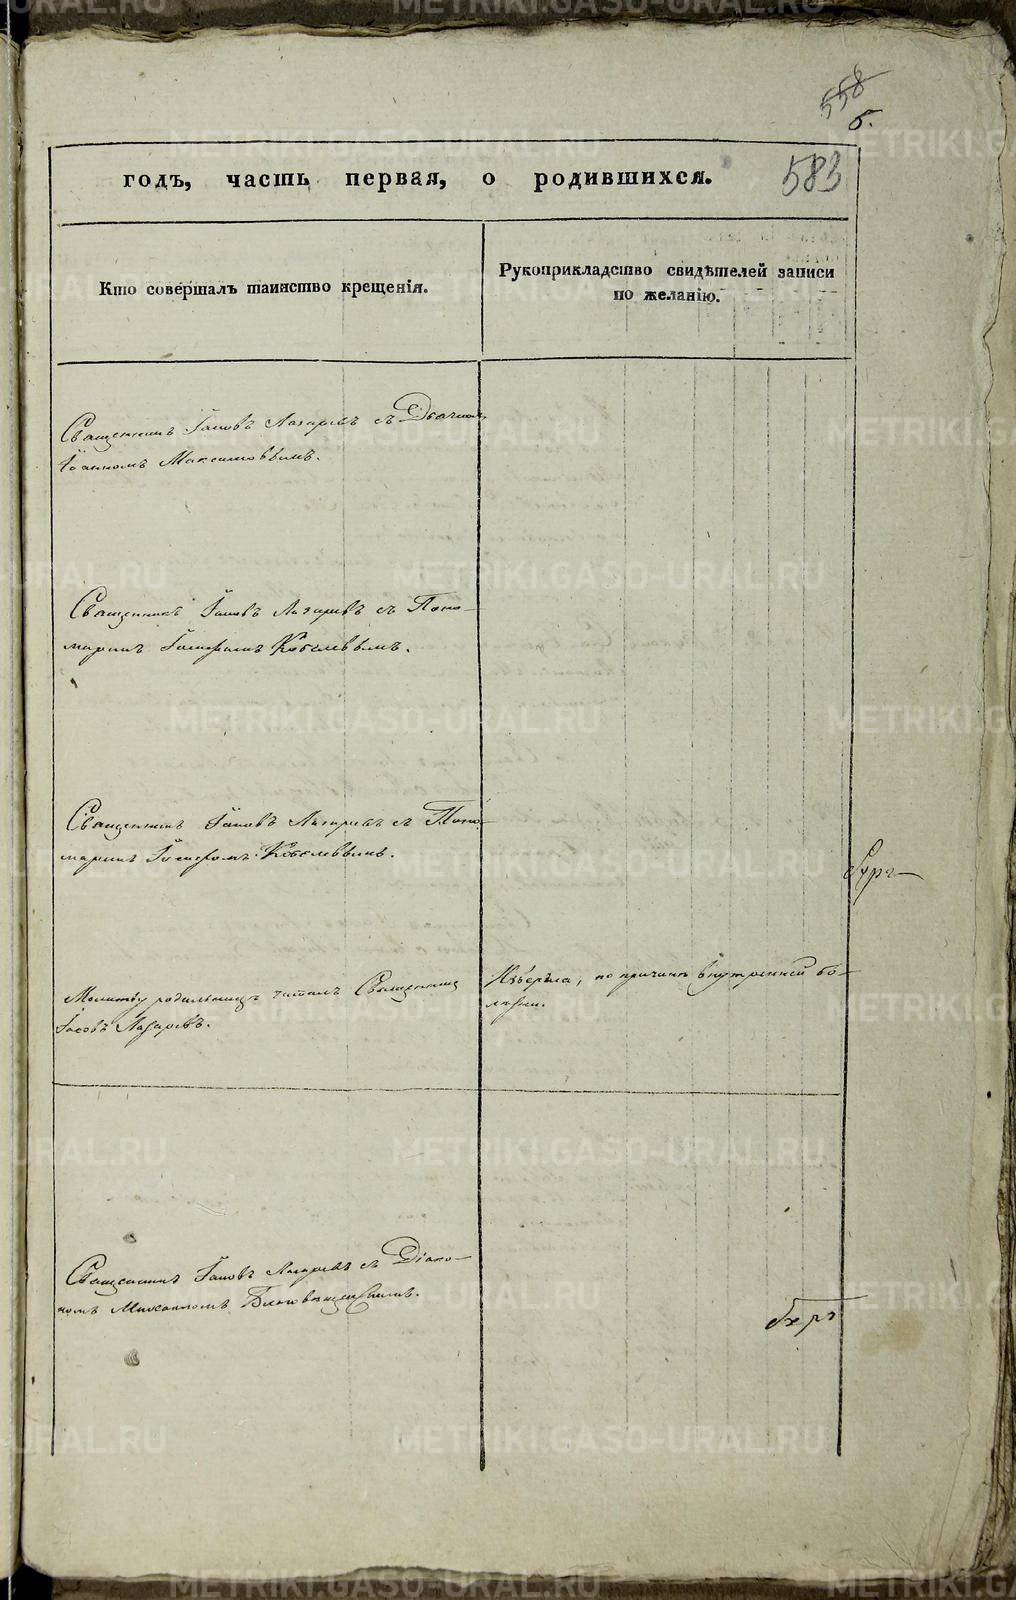 558
б.
583
годъ, часть первая, о родившихся.
Кто совершалъ таинство крещенія.
Рукоприкладство свидѣтелей записи
по желанію.
Священникъ Іаковъ Лазаревъ съ Дьячком
Іоанномъ Максимовымъ.
Священникъ Іаковъ Лазаревъ съ Поно-
маремъ Кобелевымъ.
Священникъ Іаковъ Лазаревъ съ Поно-
маремъ Кобелевымъ.
Молитву родильницѣ читалъ Священникъ
Іаковъ Лазаревъ.
по причинѣ внутренней бо-
лѣзни.
Священникъ Іаковъ Лазаревъ съ Діако-
номъ
METRIKI.GASO-URAL.RU